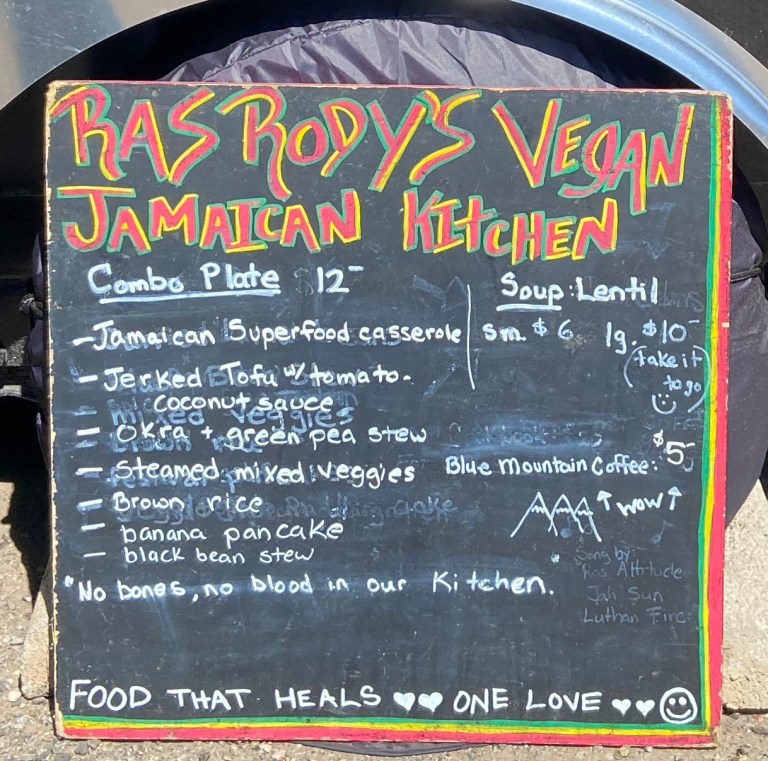 RAS RODY'S VEGAN
JAMAICAN KITCHEN
Combo Plate 12-
- Jamaican Superfood casserole
- Jerked Tofu w/ tomato-
coconut sauce
- Okra + green pea stew
- Steamed mixed veggies
- Brown rice
- banana pancake
- black bean stew
Soup: Lentil
sm. $6 lg. $10-
(take it
to go)
Blue Mountain Coffee: $5-
↑ WOW ↑
Song by:
Ras Attitude
Jah Sun
Luthan Fire
"No bones, no blood in our Kitchen.
FOOD THAT HEALS ♥♥ ONE LOVE ♥♥